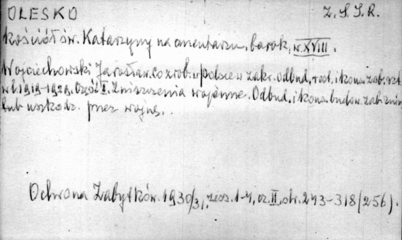 OLESKO Z.S.S.R.
Kościół św. Katarzyny na cmentarzu, barok, w. XVIII.
Wojciechowski Jarosław. Co zrob. w Polsce w zakr. odbud., rest. i konu. zab. szt.
w l. 1919-1929. Część I. Zniszczenia wojenne. Odbud. i konu. budow. zab. zniszcz.
lub uszkodz. przez wojnę.
Ochrona Zabytków. 1930/31, zesz. 1-4, cz. II, str. 243-318 (256).